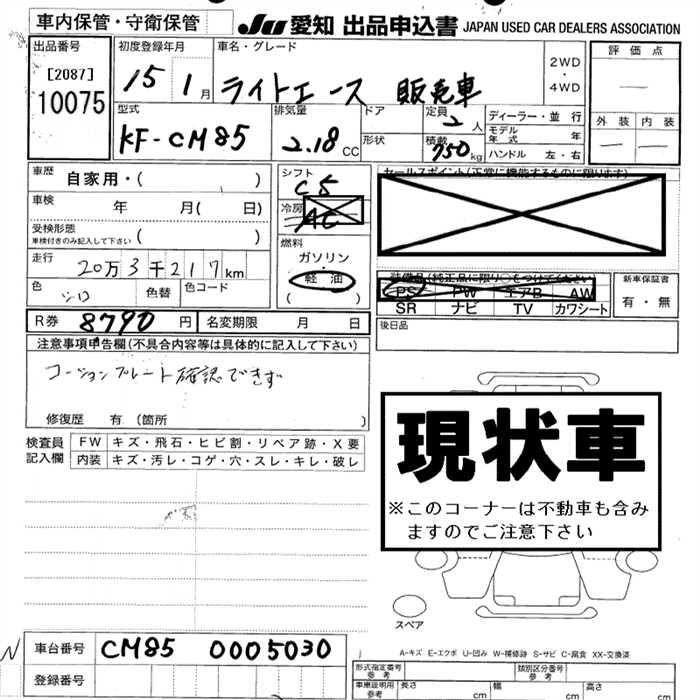 車内保管・守衛保管
JU 愛知 出品申込書 JAPAN USED CAR DEALERS ASSOCIATION
出品番号
[2087]
10075
初度登録年月
15 1月
車名・グレード
ライトエース 販売車
2WD
・
4WD
評価点
外装 内装
型式
KF-CM85
排気量
2.18 CC
ドア
形状
定員
2人
積載
750kg
ディーラー・並行
モデル年式 年
ハンドル 左・右
車歴
自家用・( )
車検
年 月( 日)
受検形態
車検付きのみ記入して下さい ( )
走行
20万3千217km
色
シロ
色替
色コード
シフト
C5
冷房
AC
燃料
ガソリン
・
軽油
( )
セールスポイント(正常に機能するものに限ります)
装備品(純正品に限り○をつけてください)
PS PW エアB AW
SR ナビ TV カワシート
新車保証書
有・無
後日品
R券 8790円 名変期限 月 日
注意事項申告欄(不具合内容等は具体的に記入して下さい)
コーションプレート確認できず
修復歴 有(箇所 )
検査員
記入欄
FW キズ・飛石・ヒビ割・リペア跡・X要
内装 キズ・汚レ・コゲ・穴・スレ・キレ・破レ
現状車
※このコーナーは不動車も含み
ますのでご注意下さい
スペア
車台番号 CM85 0005030
登録番号
A-キズ E-エクボ U-凹み W-補修跡 S-サビ C-腐食 XX-交換済
形式指定番号
参考
類別区分番号
参考
車庫証明用
参考
長さ cm 幅 cm 高さ cm